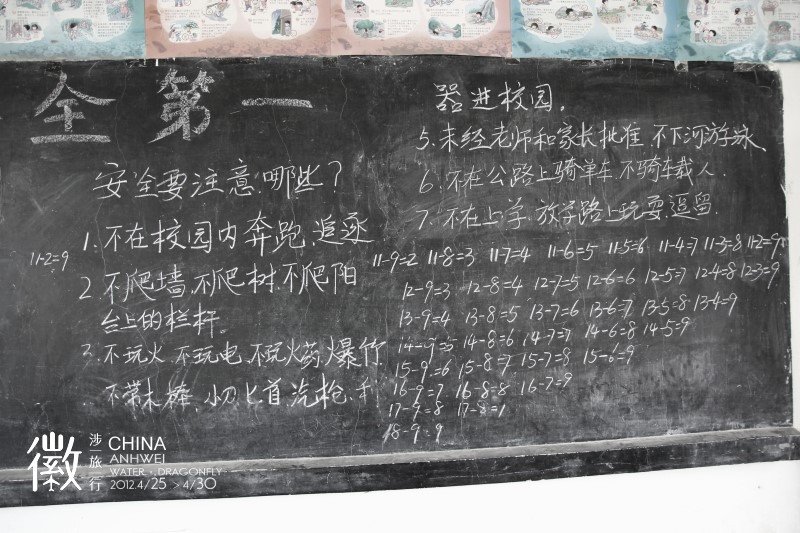 全第一
安全要注意哪些?
1.不在校园内奔跑、追逐
2.不爬墙,不爬树,不爬阳
台上的栏杆。
3.不玩火 不玩电,不玩火药、爆竹
不带木棒、小刀、匕首、汽枪、利
器进校园。
5.未经老师和家长批准,不下河游泳、
6.不在公路上骑单车,不骑车载人.
7.不在上学,放学路上玩耍,逗留.
11-2=9
11-9=2 11-8=3 11-7=4 11-6=5 11-5=6 11-4=7 11-3=8 11-2=9
12-9=3 12-8=4 12-7=5 12-6=6 12-5=7 12-4=8 12-3=9
13-9=4 13-8=5 13-7=6 13-6=7 13-5=8 13-4=9
14-9=5 14-8=6 14-7=7 14-6=8 14-5=9
15-9=6 15-8=7 15-7=8 15-6=9
16-9=7 16-8=8 16-7=9
17-9=8 17-8=
18-9=9
徽
涉旅行
CHINA
ANHWEI
WATER · DRAGONFLY
2012.4/25 > 4/30